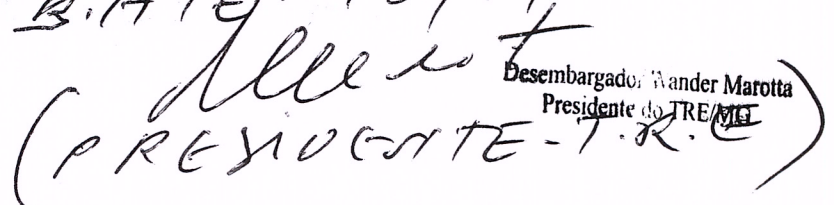 Desembargador Wander Marotta
Presidente do TRE/MG
(PRESIDENTE - T.R.E)